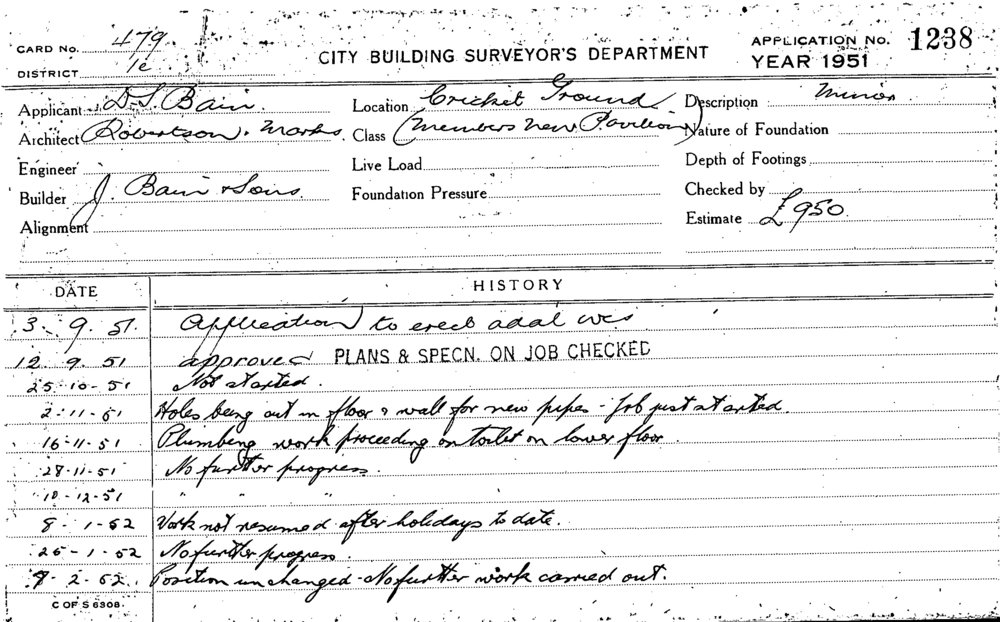 CARD No. 479
DISTRICT 1e
CITY BUILDING SURVEYOR'S DEPARTMENT
APPLICATION No. 1238
YEAR 1951
Applicant D.S. Bain.
Location Cricket Ground
Description Minor
Architect Robertson. Marks.
Class (Members New Pavilion)
Nature of Foundation
Engineer
Live Load
Depth of Footings
Builder J. Bain & Sons.
Foundation Pressure
Checked by
Alignment
Estimate £950
DATE HISTORY
3. 9. 51. Application to erect adal wcs
12. 9. 51 approved PLANS & SPECN. ON JOB CHECKED
25-10-51 Not started.
2-11-51 Holes being cut in floor & wall for new pipes - Job just started.
16-11-51 Plumbing work proceeding on toilet on lower floor.
28-11-51 No further progress.
10-12-51 " " "
8-1-52 Work not resumed after holidays to date.
25-1-52 No further progress.
7-2-52 Position unchanged - No further work carried out.
C OF S 6308